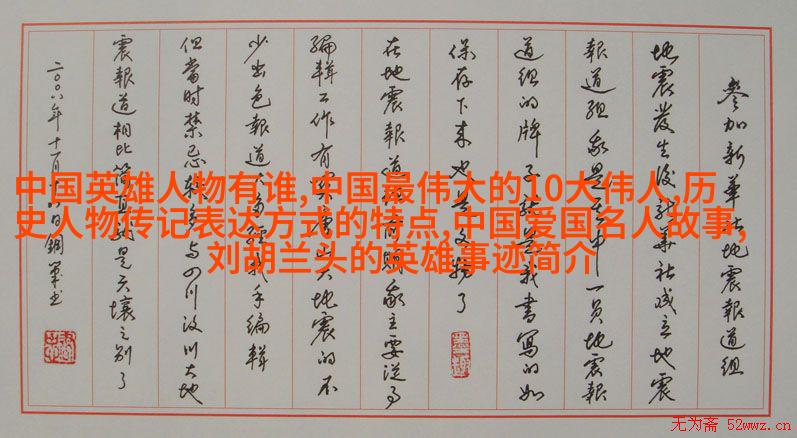 参加新华社地震报道组
地震发生后新华社成立地震
报道组我是其中一员地震报
道组的牌子就是我书写的如
保存下来也是文物了
在地震报道 我主要从事
编辑工作有 唐山大地震的不
少出色报道 我手编辑
但当时禁忌 与四川汶川大地
震报道相比简 是天壤之别了
二〇〇八年十 日 军书
中国英雄人物有谁,中国最伟大的10大伟人,历
史人物传记表达方式的特点,中国爱国名人故事,
刘胡兰头的英雄事迹简介
无为斋 52wwz.cn